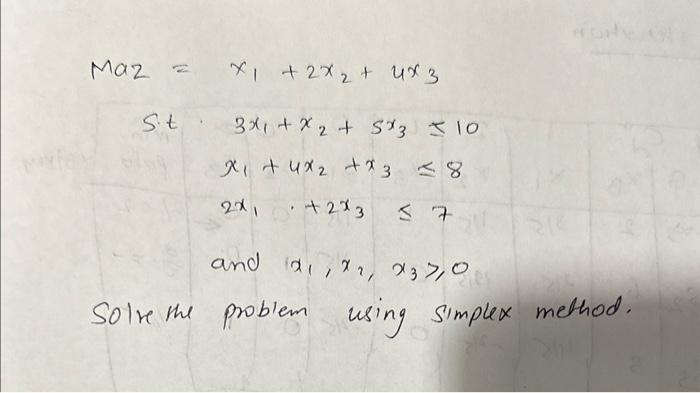 Maz = x1 + 2x2 + 4x3
S.t. 3x1 + x2 + 5x3 ≤ 10
x1 + 4x2 + x3 ≤ 8
2x1 . + 2x3 ≤ 7
and x1, x2, x3 ≥ 0
Solve the problem using simplex method.